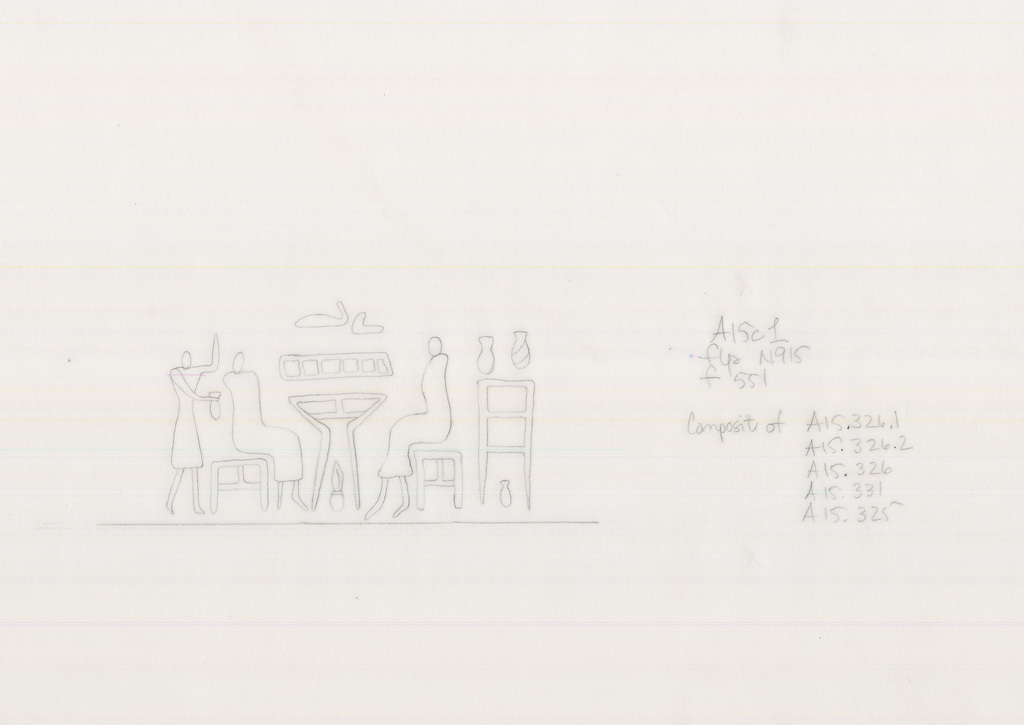 A15c1
flp N915
f 551
Composite of A15.326.1
A15.326.2
A15.326
A15.331
A15.325